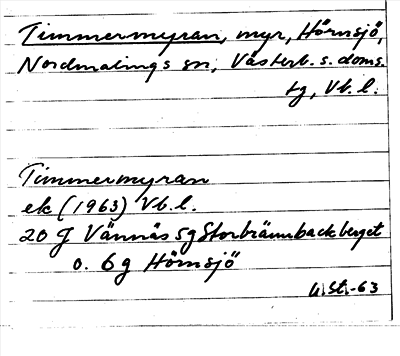 Timmermyran, myr, Hörnsjö,
Nordmalings sn, Västerb. s. doms.
tg, Vb. l.
Timmermyran
ek (1963) Vb. l.
20 J Vännäs 5g Storbrännbackberget
o. 6g Hörnsjö
U.St.-63